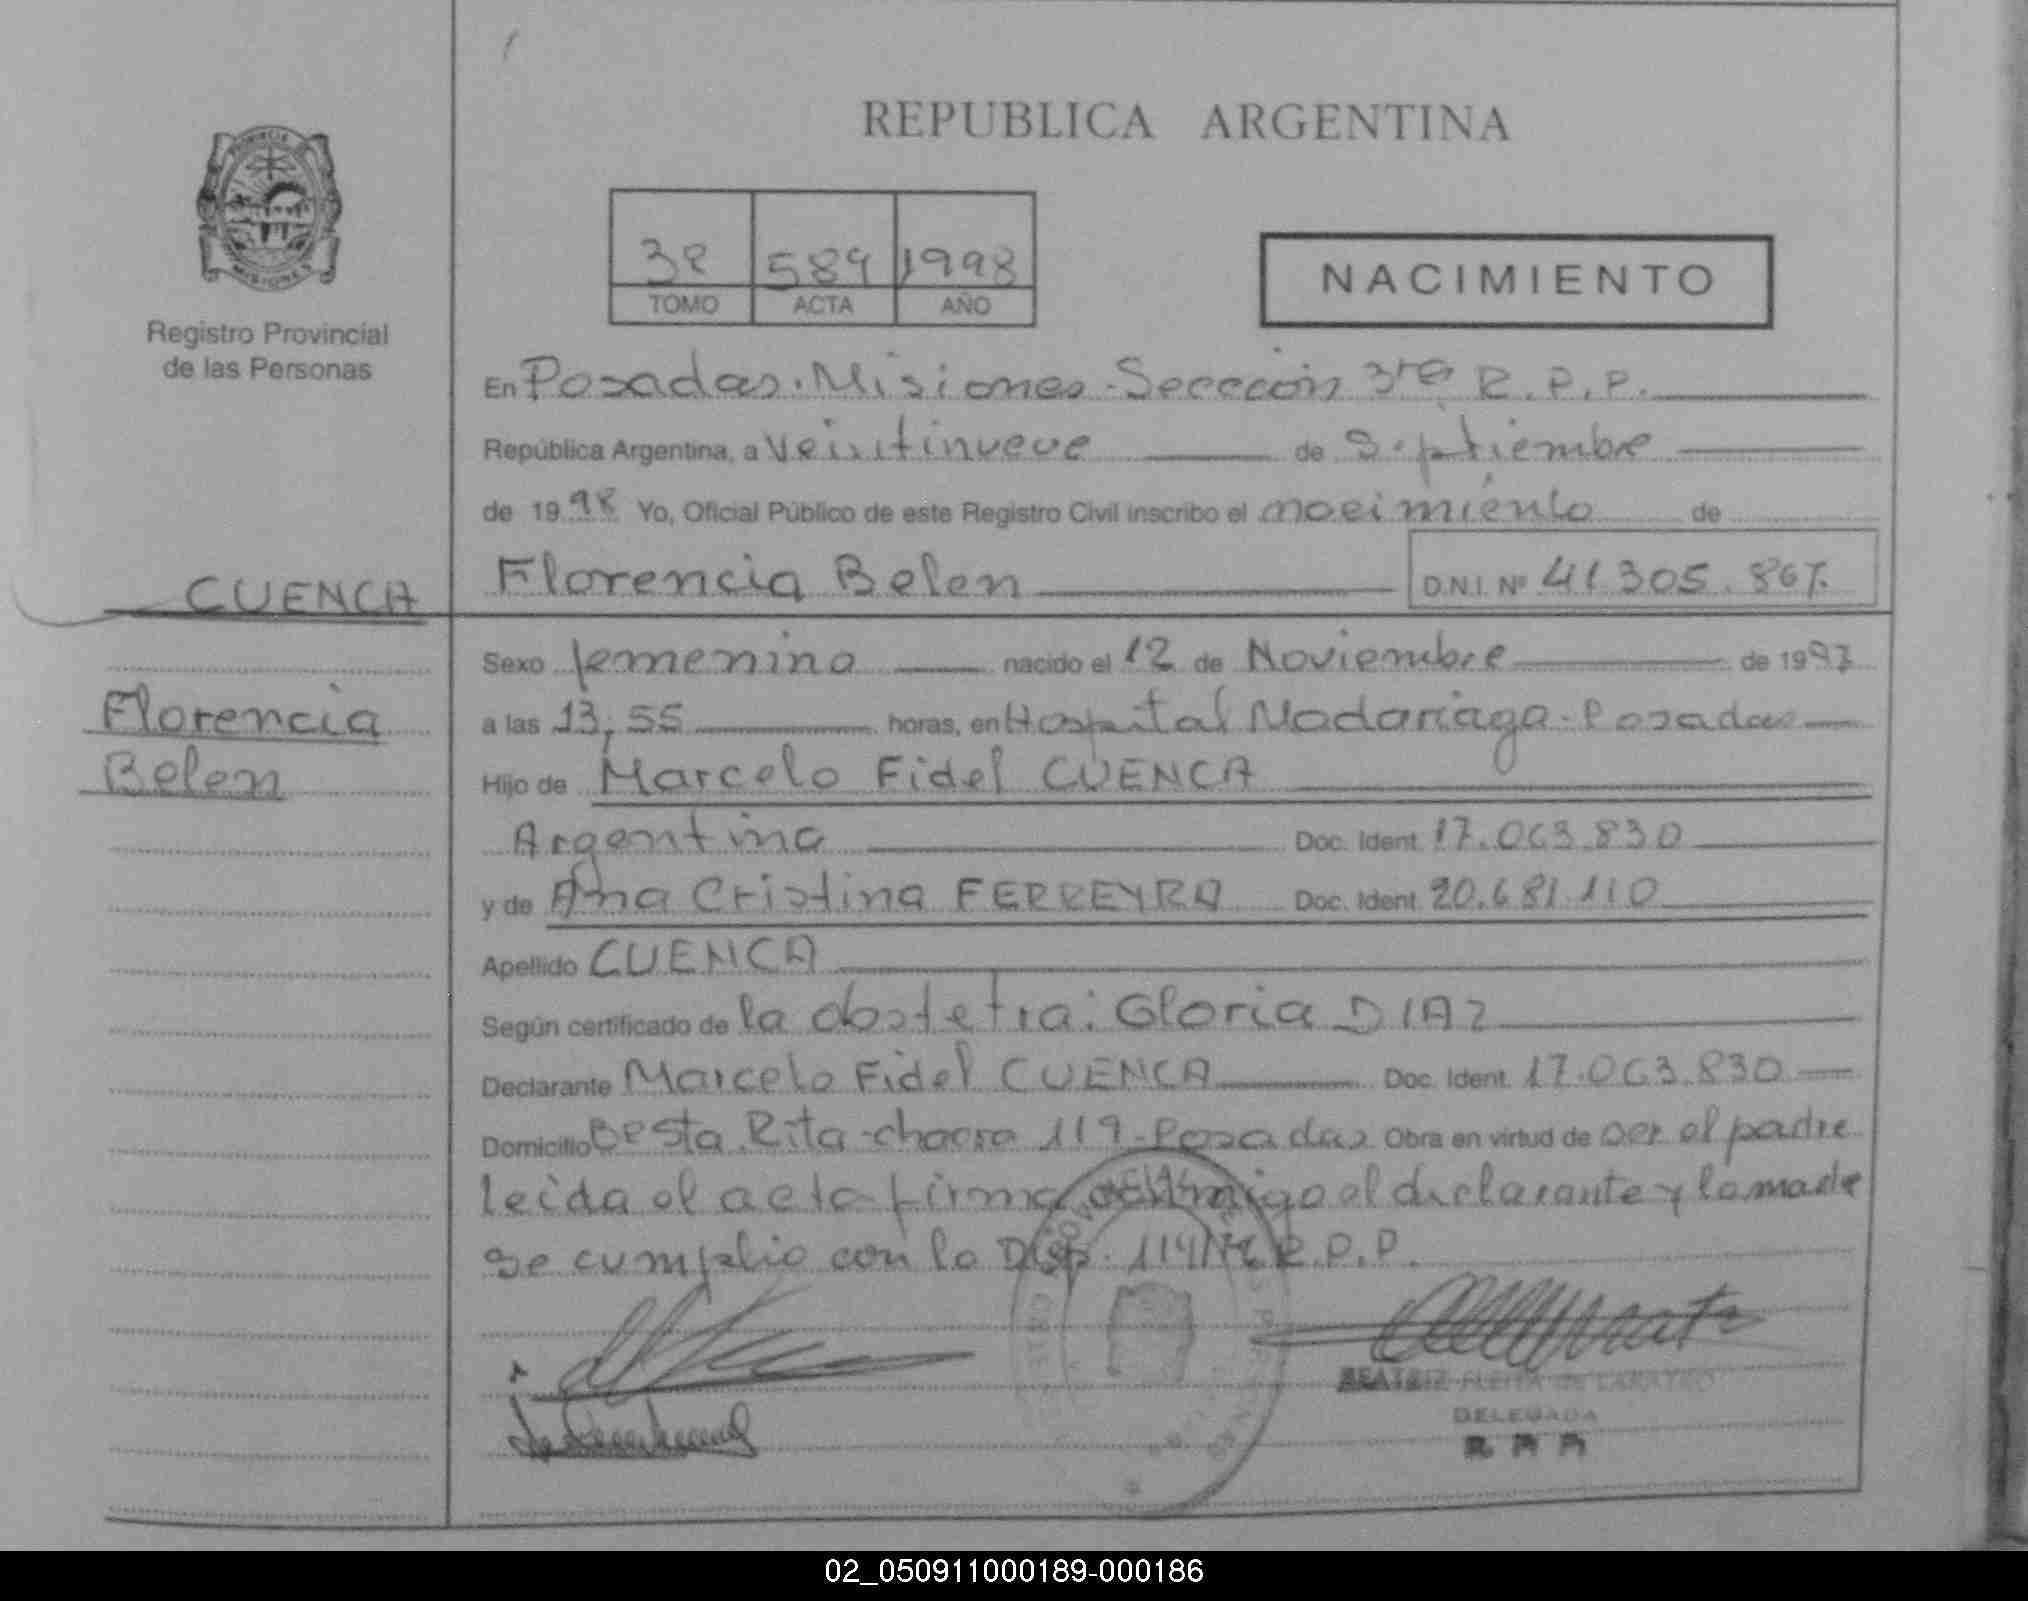 REPUBLICA ARGENTINA
PROVINCIA DE MISIONES
Registro Provincial
de las Personas
589 1998
TOMO ACTA AÑO
NACIMIENTO
En Posadas. Misiones - Sección 3ra R.P.P.
República Argentina, a veintinueve de Septiembre
de 1998 Yo, Oficial Público de este Registro Civil inscribo el nacimiento de
CUENCA
Florencia Belen D.N.I. Nº 41.305.867.
Sexo femenino nacido el 12 de Noviembre de 1997
Florencia
a las 13,55 horas, en Hospital Madariaga - Posadas
Belen
Hijo de Marcelo Fidel CUENCA
Argentina Doc. Ident. 17.063.830
y de Ana Cristina FERREYRA Doc. Ident. 20.681.110
Apellido CUENCA
Según certificado de la obstetra: Gloria DIAZ
Declarante Marcelo Fidel CUENCA Doc. Ident. 17.063.830
Domicilio Rita - chacra 119 - Posadas Obra en virtud de ser el padre
Leida el acta firma conmigo el declarante y la madre
se cumplio con la Disp. R.P.P.
BEATRIZ FLEITA de
DELEGADA
02_050911000189-000186